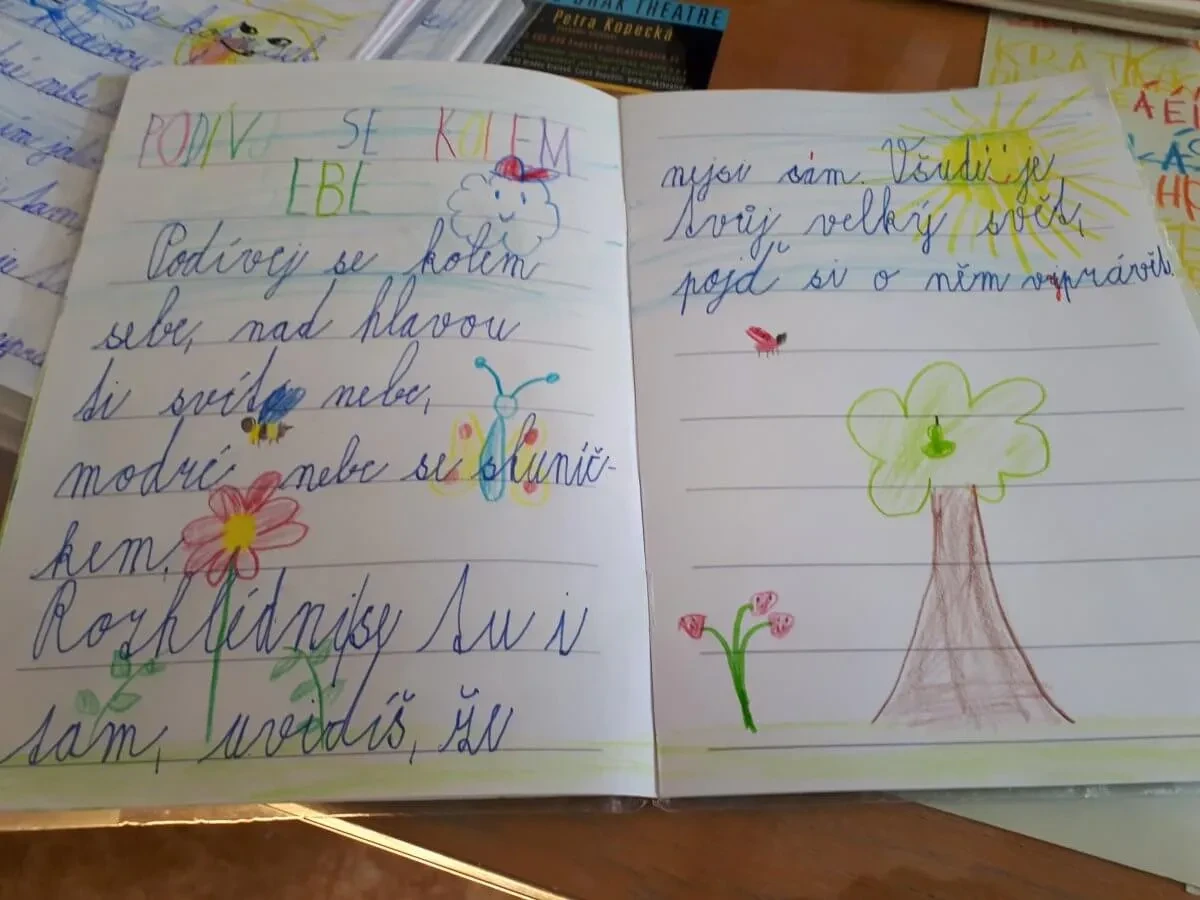 PODÍVJ SE KOLEM
EBE
Podívej se kolem
sebe, nad hlavou
ti svítí nebe,
modré nebe se sluníč-
kem.
Rozhlédni se tu i
tam, uvidíš, že
nejsi sám. Všude je
tvůj velký svět,
pojď si o něm vyprávět.
DRAK THEATRE
Petra Kopecká
KRÁTK